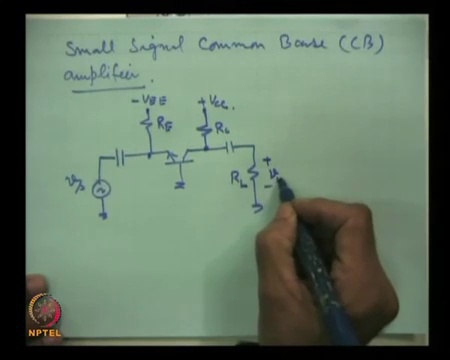 Small Signal Common Base (CB)
amplifier.
-VEE
+VCC
RE
RC
vs
RL
+
v
-
NPTEL